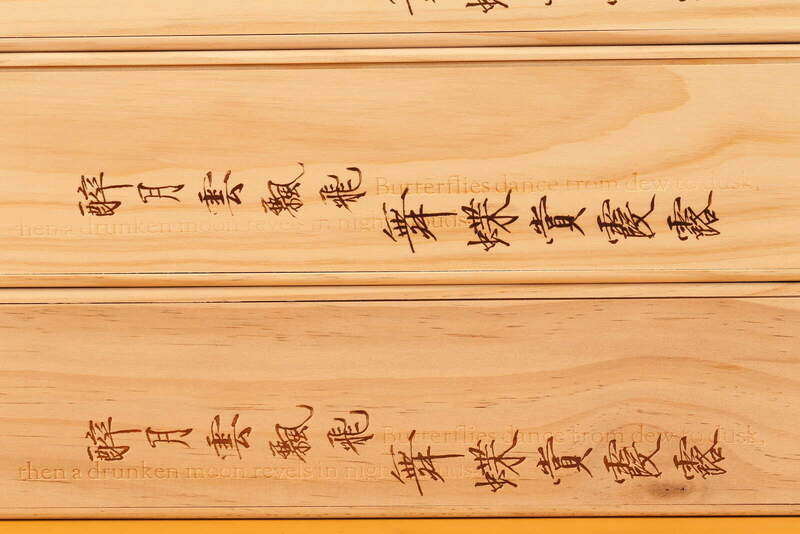 露霞賁蝶舞
飛飄雲月醉
Butterflies dance from dew to dusk,
then a drunken moon revels in
露霞賁蝶舞
飛飄雲月醉
Butterflies dance from dew to dusk,
then a drunken moon revels in